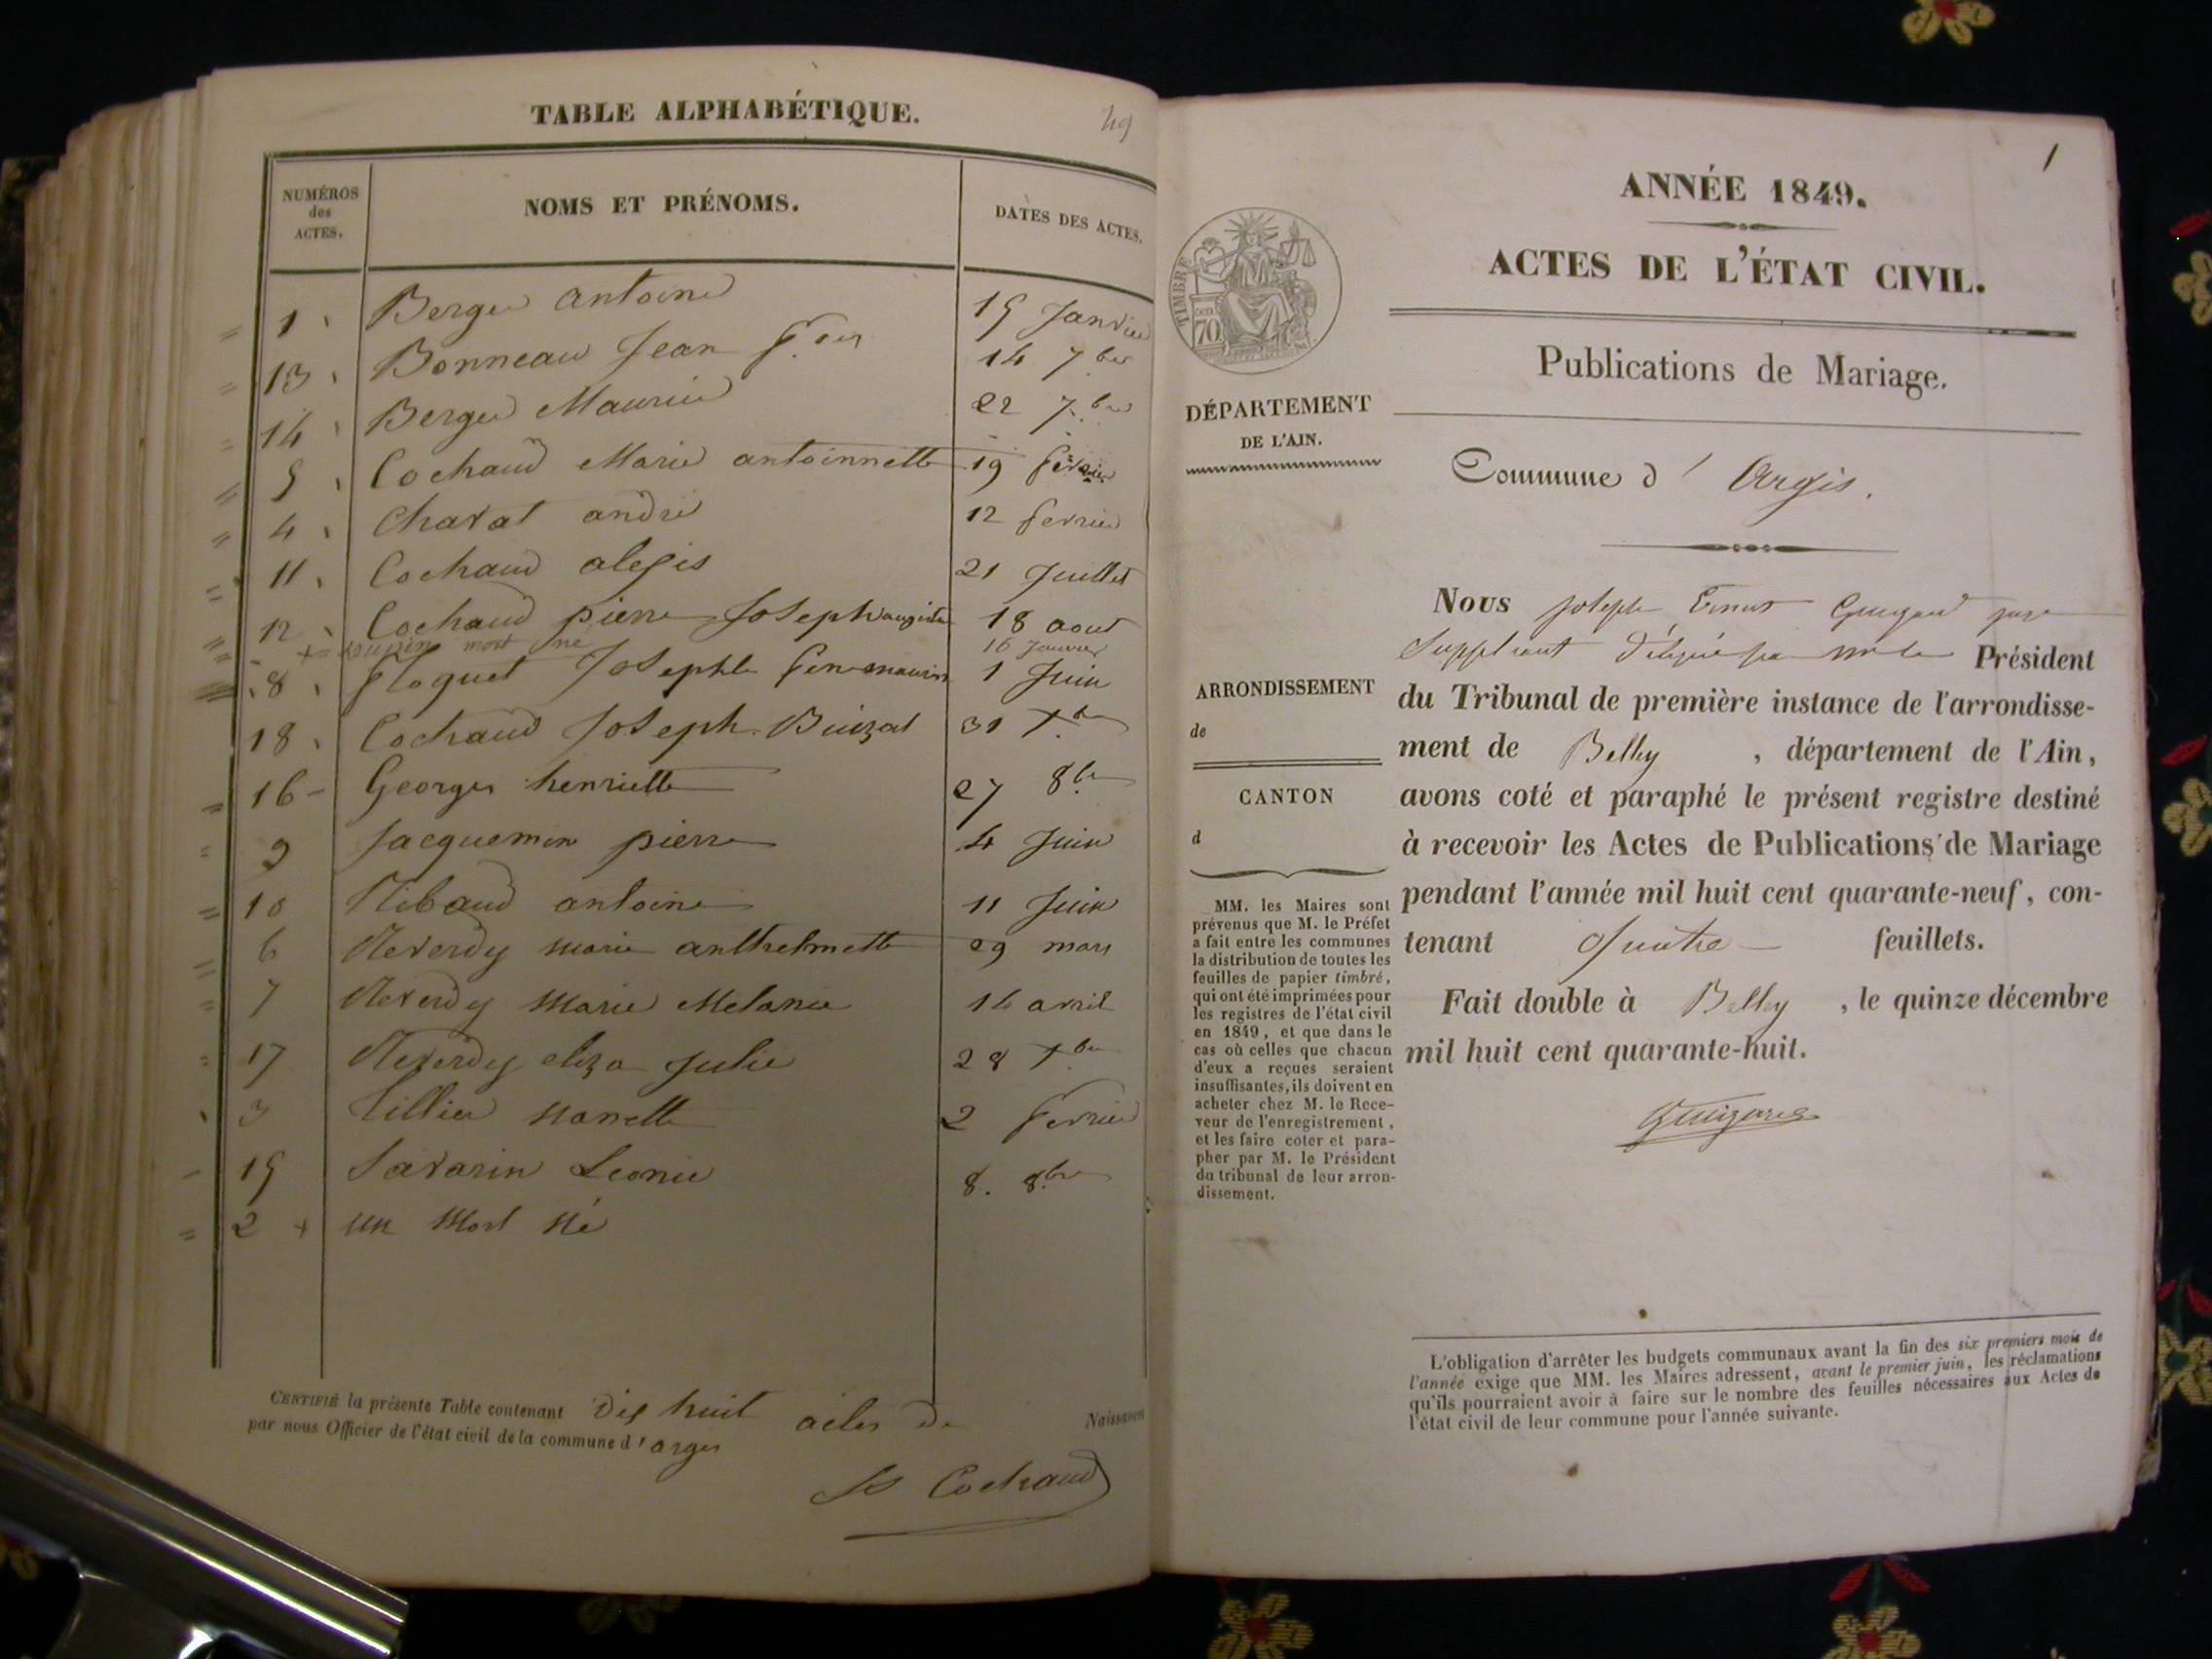 TABLE ALPHABÉTIQUE.
49
NUMÉROS
des
ACTES.
NOMS ET PRÉNOMS.
DATES DES ACTES.
1 Berger antoine 15 Janvier
13 Bonneau Jean 14 7bre
14 Berger Maurice 22 7bre
5 Cochaud Marie antoinnette 19 février
4 Charat andré 12 fevrier
11 Cochaud alexis 21 Juillet
12 Cochaud pierre Joseph augiste 18 aout
mort né 16 Janvier
8 floquet Josephte 1 Juin
18 Cochaud Joseph Buizat 31 Xbre
16 Georges henriette 27 8bre
9 Jacquemin pierre 4 Juin
10 Ribaud antoine 11 Juin
6 Reverdy marie anthelmette 29 mars
7 Reverdy Marie Melanie 14 avril
17 Reverdy eliza Julie 28 Xbre
3 Tillier Nanette 2 fevrier
15 Savarin Leonie 8. 8bre
2 + un Mort Né
CERTIFIÉ la présente Table contenant Dix huit actes de Naissances
par nous Officier de l'état civil de la commune d'argis
Cochaud
1
ANNÉE 1849.
ACTES DE L'ÉTAT CIVIL.
Publications de Mariage.
TIMBRE
70
DÉPARTEMENT
DE L'AIN.
Commune d'Argis.
ARRONDISSEMENT
de
CANTON
d
MM. les Maires sont
prévenus que M. le Préfet
a fait entre les communes
la distribution de toutes les
feuilles de papier timbré,
qui ont été imprimées pour
les registres de l'état civil
en 1849, et que dans le
cas où celles que chacun
d'eux a reçues seraient
insuffisantes, ils doivent en
acheter chez M. le Rece-
veur de l'enregistrement,
et les faire coter et para-
pher par M. le Président
du tribunal de leur arron-
dissement.
Nous Joseph Ernest Guigard juge
Suppléant délégué par Mr le Président
du Tribunal de première instance de l'arrondisse-
ment de Belley, département de l'Ain,
avons coté et paraphé le présent registre destiné
à recevoir les Actes de Publications de Mariage
pendant l'année mil huit cent quarante-neuf, con-
tenant Quatre feuillets.
Fait double à Belley, le quinze décembre
mil huit cent quarante-huit.
Guigard
L'obligation d'arrêter les budgets communaux avant la fin des six premiers mois de
l'année exige que MM. les Maires adressent, avant le premier juin, les réclamations
qu'ils pourraient avoir à faire sur le nombre des feuilles nécessaires aux Actes de
l'état civil de leur commune pour l'année suivante.